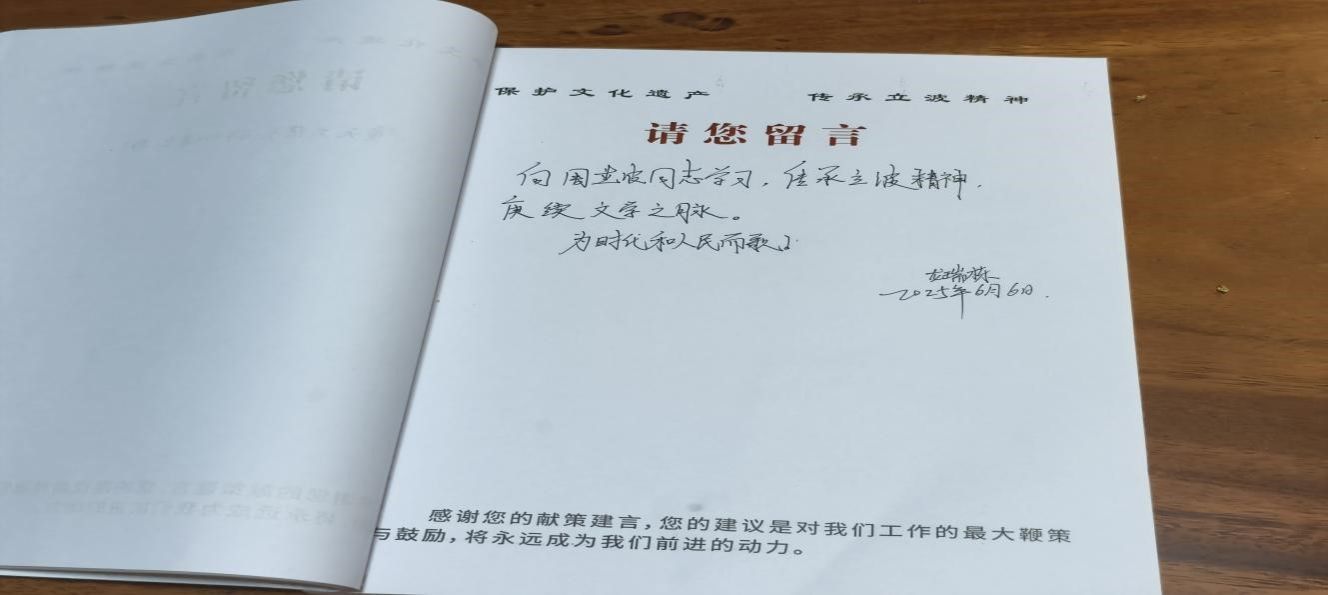 保护文化遗产 传承立波精神
请您留言
向周立波同志学习,传承立波精神.
赓续文学之脉。
为时代和人民而歌!
2025年6月6日.
感谢您的献策建言,您的建议是对我们工作的最大鞭策
与鼓励,将永远成为我们前进的动力。